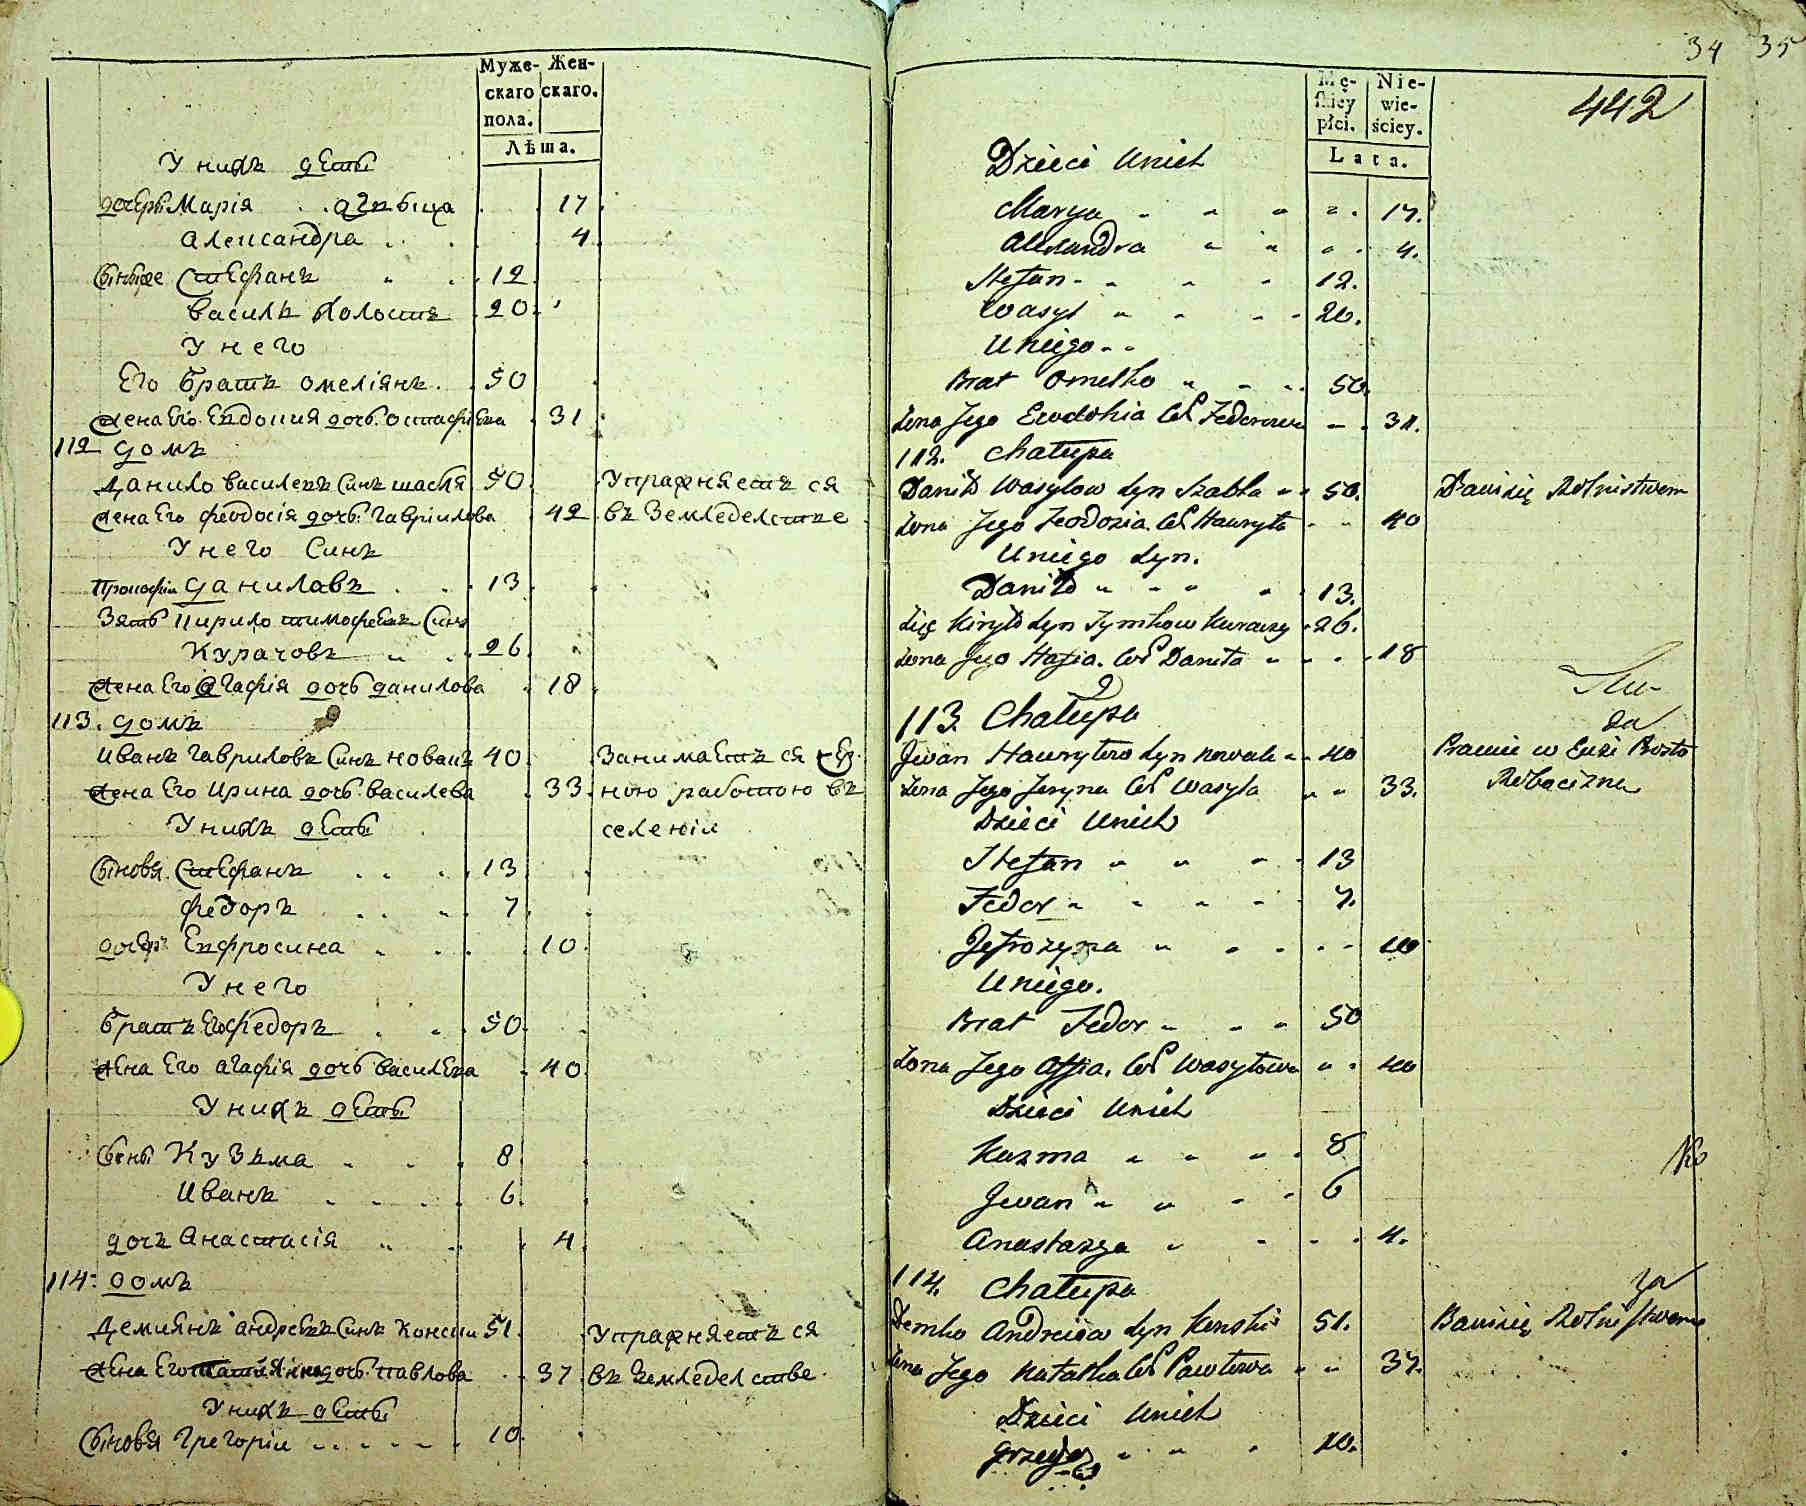 Муже-
скаго
пола.
Жен-
скаго.
Лѣта.
У нихъ дети
дочери Марія . . девица . 17
Александра . . . 4
Сыновe Стефанъ . . 12
василъ холостъ . 20
У него
Его братъ омеліянъ . . 50
жена Его Евдокия дочь остафиева . 31
112 домъ
Данило василевъ Синъ шабля 50 Упражняетъ ся
жена Его феодосія дочь гавріилова . 42 въ Земледелстве
У него Синъ
Прокофіи даниловъ . . 13
Зять Кирило тимофеевъ Синъ
Курачовъ . . 26
жена Его Агафія дочь данилова . 18
113. домъ
иванъ гавриловъ Синъ новакъ 40 Занимаетъ ся
жена Его Ирина дочь василева . 33 ною работою въ
У нихъ дети селеніи
Сыновя Стефанъ . . . 13
федоръ . . . . 7
дочь Евфросина . . . 10
У него
братъ Его федоръ . . . 50
жена Его агафія дочь василева . 40
У нихъ дети
Сыны Кузьма . . . 8
иванъ . . . . 6
дочь Анастасія . . . 4
114. домъ
Демиянъ андреевъ Синъ 51 Упражняетъ ся
жена Его дочь павлова . . 37 въ земледелстве
У нихъ дети
Сыновя григоріи . . . . . 10
34 35
442
Mę-
skiey
płci.
Nie-
wie-
ściey.
Lata.
Dzieci Unich
Marya - - - - 17.
Alexandra - - - 4.
Stefan - - - - 12.
Wasyl - - - - 20.
Uniego - -
Brat Omelko - - - 50.
Żona Jego Ewdokia Cór Fedorowa - - 31.
112. Chałupa
Daniło Wasylow Syn Szabla - - 50. Bawisię Rolnistwem
Żona Jego Feodozia Cór Hawryła - - 40
Uniego Syn.
Daniło - - - - 13.
Zięć Kiryło Syn Tymkow Kuraczy - 26.
Żona Jego Hafia Cór Daniła - - - 18
113. Chałupa
Jwan Hawryłow Syn Nowak - - 40
Żona Jego Jeryna Cór Wasyla - - 33.
Dzieci Unich
Stefan - - - - 13
Fedor - - - - - 7.
Jefrozyna - - - - - 10
Uniego.
Brat Fedor - - - 50
Żona Jego Affia Cór Wasylowa - - 40
Dzieci Unich
Kuzma - - - - 8
Jwan - - - - 6
Anastazya - - - - 4.
114. Chałupa
Demko Andreiow Syn 51. Bawisię Rolnistwem
Żona Jego Natalka Cór Pawłowa - - 37.
Dzieci Unich
Grzegorz - - - 10.